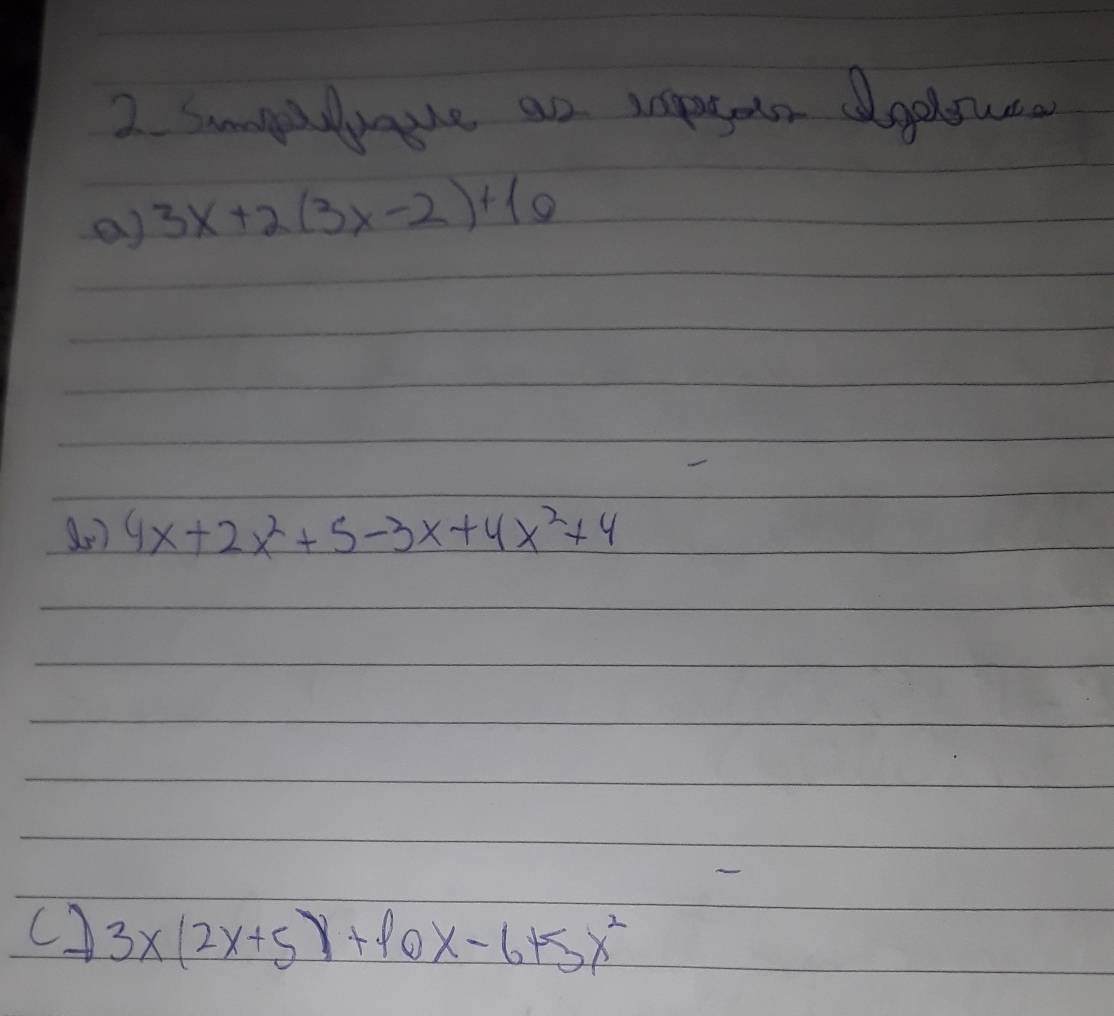 2- Simplifique as expreções Algebrica
a) 3x+2(3x-2)+10
b) 4x+2x²+5-3x+4x²+4
C) 3x(2x+5)+10x-6+5x²